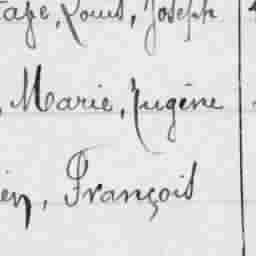 Louis, Joseph
, Marie, Eugène
, François